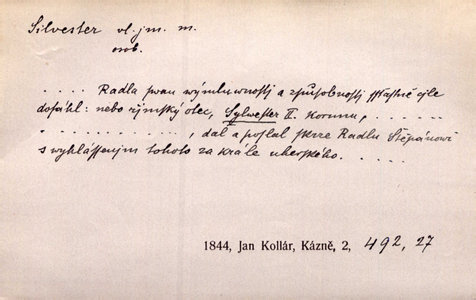 Silvester vl. jm. m.
osob.
. . . . Radla swau wýmluwnostj a způsobnostj šťastně cjle
dosáhl: nebo řjmský otec, Sylwester II. korunu, . . . . . .
. . . . . . . . . . , dal a poslal skrze Radlu Štěpánowi
s wyhlášenjm tohoto za krále uherského. . . . .
1844, Jan Kollár, Kázně, 2, 492, 27